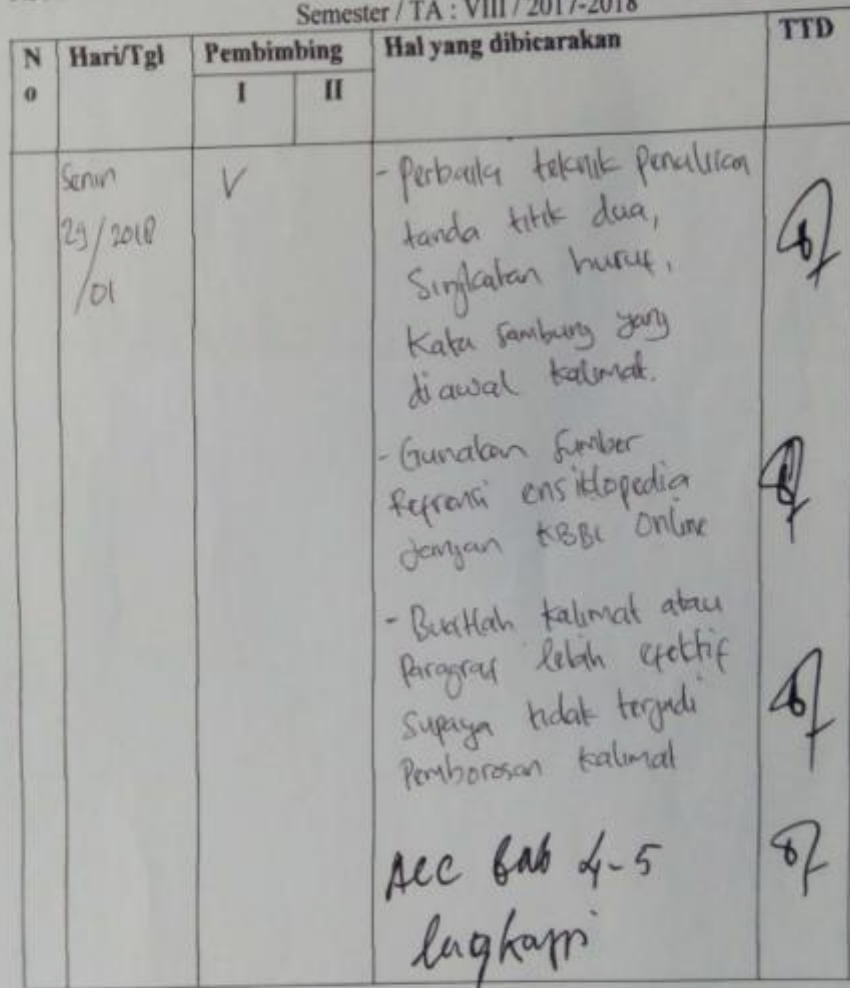 Semester / TA : VIII / 2017-2018
N
o
Hari/Tgl
Pembimbing
I
II
Hal yang dibicarakan
TTD
Senin
29/2018
/01
V
- Perbaiki teknik Penulisan
tanda titik dua,
Singkatan huruf,
Kata sambung yang
di awal kalimat.
- Gunakan sumber
Refrensi ensiklopedia
jangan KBBI Online
- Buatlah kalimat atau
Paragraf lebih efektif
Supaya tidak terjadi
Pemborosan kalimat
ACC Bab 4-5
lengkapi